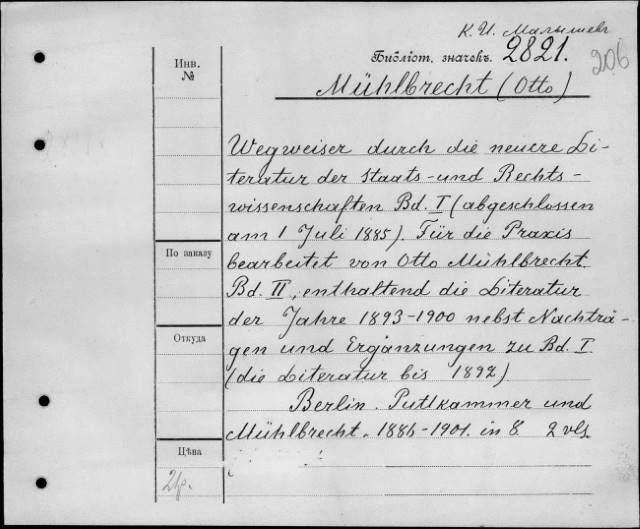 К. И. Малышев
206
Библiот. значекъ. 2821.
Mühlbrecht (Otto)
Инв.
№
Wegweiser durch die neuere Li-
teratur der Staats- und Rechts-
wissenschaften Bd. I (abgeschlossen
am 1 Juli 1885). Für die Praxis
bearbeitet von Otto Mühlbrecht.
Bd. II, enthaltend die Literatur
der Jahre 1893-1900 nebst Nachträ-
gen und Ergänzungen zu Bd. I.
(die Literatur bis 1892)
Berlin. Puttkammer und
Mühlbrecht. 1886-1901. in 8. 2 vls.
По заказу
Откуда
Цѣна
2р.